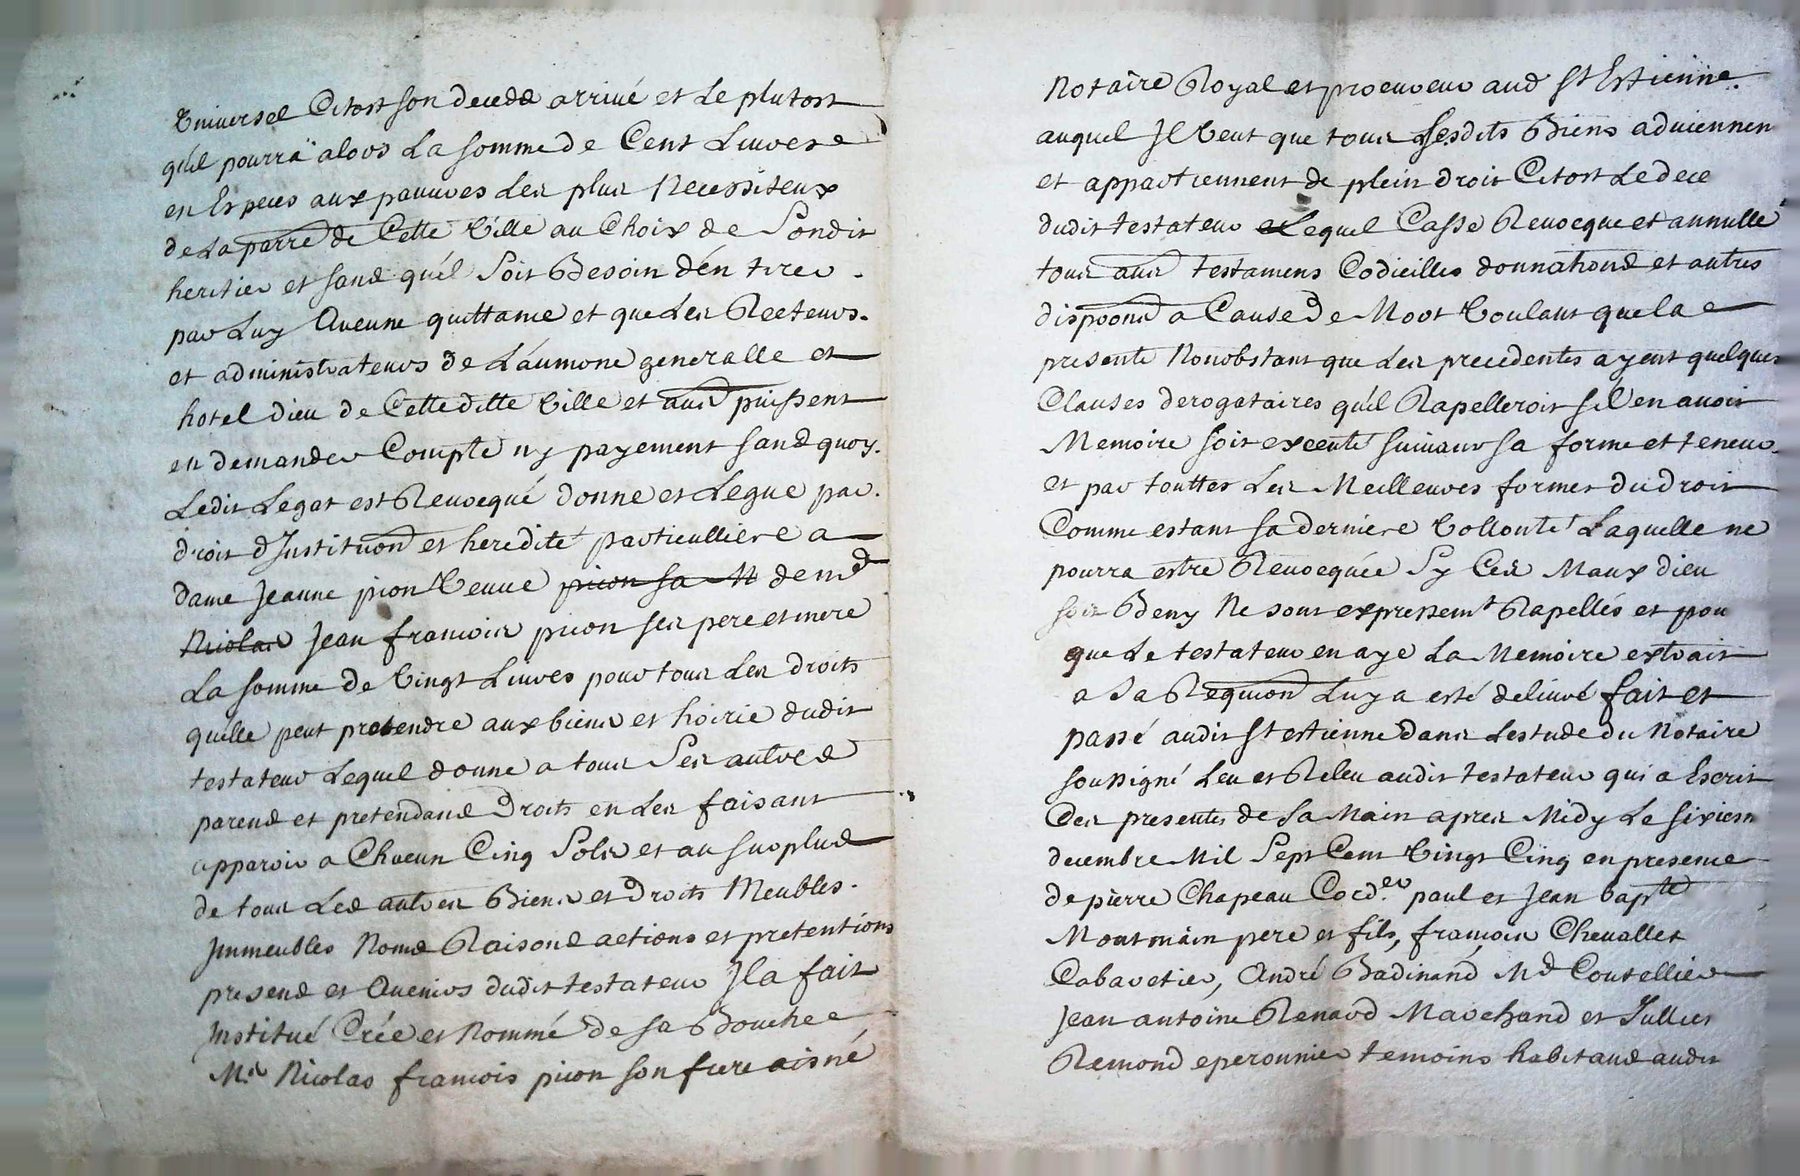 Universel Citost son decedz arrivé et Le plutost
qu'il pourra alors La somme de Cent Livres
en Especes aux pauvres Les plus Necessiteux
de La parre de Cette Ville au Choix de Sondit
heritier et sans qu'il soit Besoin d'en tirer
par Luy Aucune quittance et que Les Recteurs
et administrateurs de L'aumone generalle et
hotel Dieu de Cetteditte Ville et aus puissent
en demander Compte ny payement sans quoy
Ledit Legat est Revocqué donne et Legue par
droit d'Institution et heredité particulliere a
dame Jeanne pion Veuve pion sa de md
Nicolas Jean francois pion ses pere et mere
La somme de Vingt Livres pour tous Les droits
quelle peut pretendre aux biens et hoirie dudit
testateur Lequel donne a tous Ses autres
parens et pretendans Droits en Les faisant
apparoir a Chacun Cinq Sols et au surplus
de tous Les autres Biens et Droits Meubles
Immeubles Noms Raisons actions et pretentions
presens et Avenirs dudit testateur Il a fait
Institué Crée et Nommé de sa Bouche
Mr Nicolas francois pion son frere aisné
Notaire Royal et procureur aud St Estienne
auquel Il Veut que tous Sesdits Biens adviennen
et appartiennent de plein droit Citost Le dece
dudit testateur Lequel Casse Revocque et annulle
tous aus testamens Codicilles donnations et autres
dispoons a Cause De Mort Voulant que la
presente Nonobstant que Les precedentes ayent quelques
Clauses derogatoires qu'il Rapelleroit s'il en avoit
Memoire soit executé suivant sa forme et teneur
et par touttes Les Meilleures formes du droit
Comme estant sa derniere Vollonté Laquelle ne
pourra estre Revocquée Sy Ces Maux dieu
soit Beny Ne sont expressemt Rapellés et pou
que Le testateur en aye La Memoire extrait
a Sa Requion Luy a esté delivré fait et
passé audit St estienne dans Lestude du Notaire
soussigné Leu et Releu audit testateur qui a Escrit
Ces presentes de sa Main apres Midy Le sixiem
decembre Mil Sept Cent Vingt Cinq en presence
de pierre Chapeau Cord.er paul et Jean bapte
Montmain pere et fils, francois Chevallet
Cabaretier, André Badinand Md Coutellier
Jean antoine Renard Marchand et Jullien
Remond eperonnier temoins habitans audit